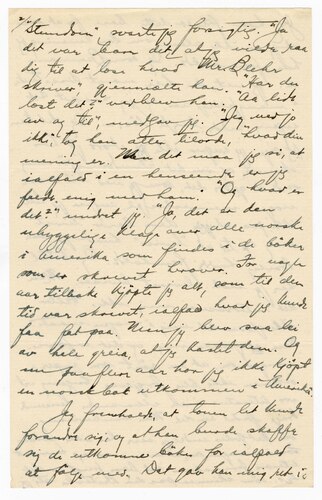 "Stundom", svarte jeg forsigtig. "Ja
det var bare det, at jeg vilde raa
dig til at læse hvad Mr. Baker
skriver", gjenmælte han. "Har du
læst det?" vedblev han. "Aa lidt
av og til", medgav jeg. "Jeg ved jo
ikke", tog han atter tilorde, "hvad din
mening er. Men det maa jeg si, at
ialfald i en henseende er jeg
enig med ham." "Og hvad er
det?" undret jeg. "Jo, det er den
uhyggelige klage over alle norske
i Amerika som findes i de bøker
som er skrevet herover. For nogle
aar tilbake kjøpte jeg alt, som til den
tid var skrevet, ialfald hvad jeg kunde
faa fat paa. Men jeg blev saa lei
av hele greia, at jeg kastet dem. Og
nu paa flere aar har jeg ikke kjøpt
en norsk bok utkommen i Amerika."
Jeg foreholdt, at tonen let kunde
forandre sig, og at han burde skaffe
sig de utkomne bøker for ialfald
at følge med. Det gav han mig ret i,